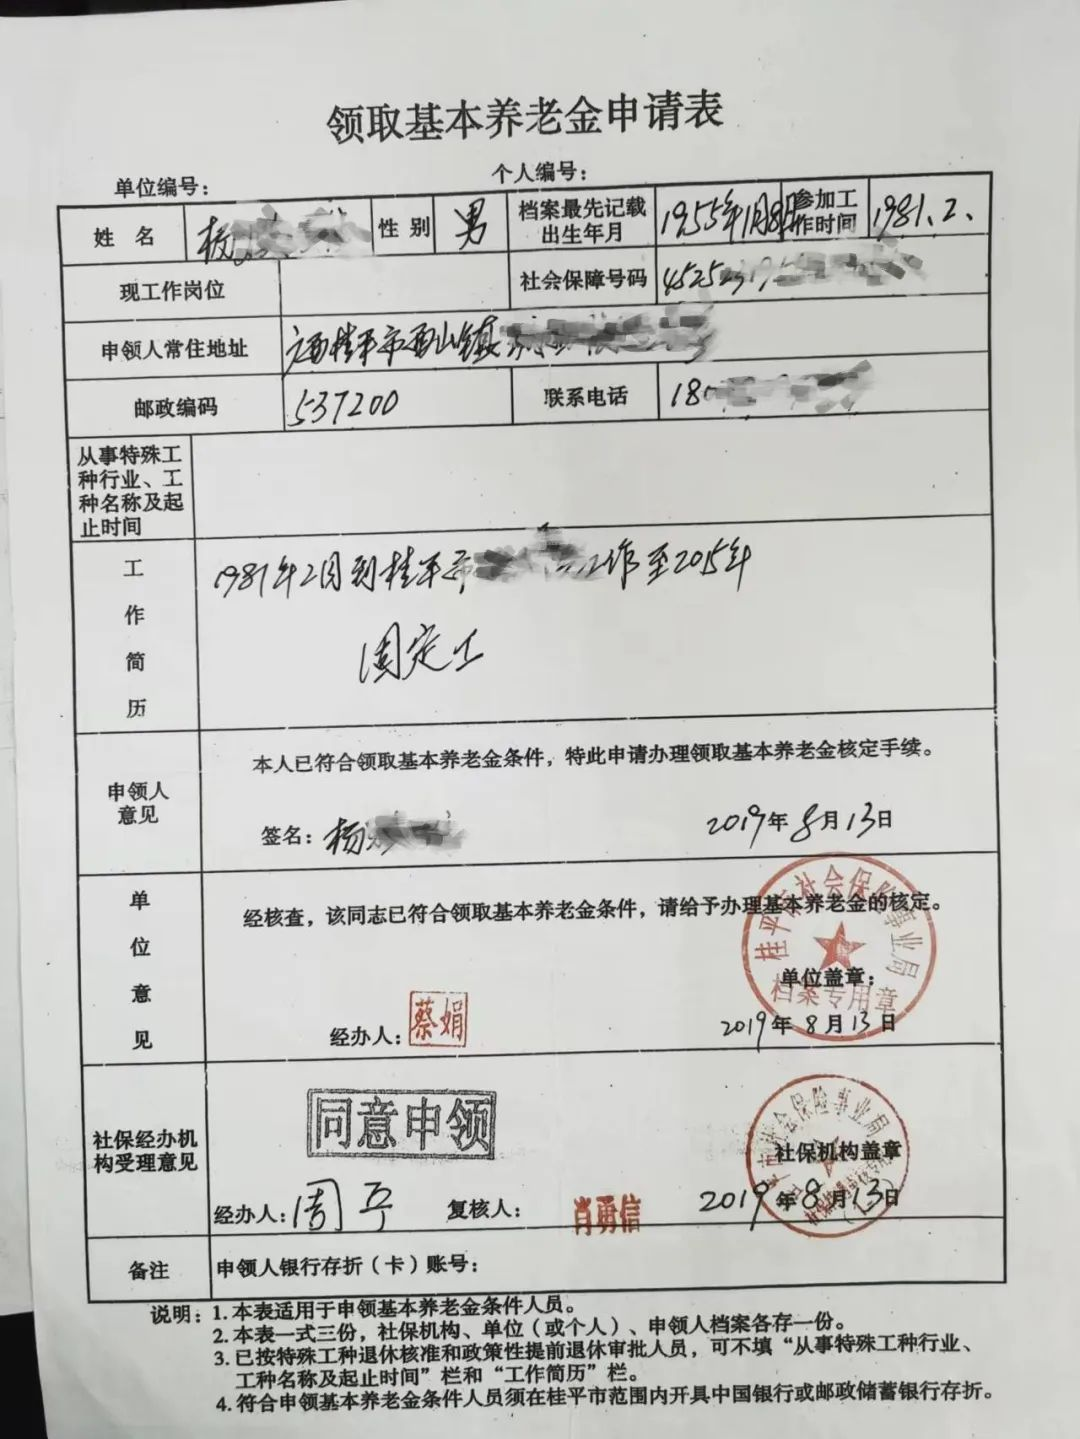 领取基本养老金申请表
单位编号：
个人编号：
姓 名
性 别 男
档案最先记载
出生年月
1955年1月8日
参加工
作时间
1981.2.
现工作岗位
社会保障号码
申领人常住地址
广西桂平市西山镇
邮政编码
537200
联系电话
18
从事特殊工
种行业、工
种名称及起
止时间
工
作
简
历
1981年2月到桂平市 工作至2015年
固定工
申领人
意见
本人已符合领取基本养老金条件，特此申请办理领取基本养老金核定手续。
签名：杨
2019年8月13日
单
位
意
见
经核查，该同志已符合领取基本养老金条件，请给予办理基本养老金的核定。
桂平市社会保险事业局
档案专用章
单位盖章：
经办人：蔡娟
2019年8月13日
社保经办机
构受理意见
同意申领
社会保险事业局
社保机构盖章
经办人：周
复核人：肖勇信
2019年8月13日
备注
申领人银行存折（卡）账号：
说明：1.本表适用于申领基本养老金条件人员。
2.本表一式三份，社保机构、单位（或个人）、申领人档案各存一份。
3.已按特殊工种退休核准和政策性提前退休审批人员，可不填“从事特殊工种行业、
工种名称及起止时间”栏和“工作简历”栏。
4.符合申领基本养老金条件人员须在桂平市范围内开具中国银行或邮政储蓄银行存折。